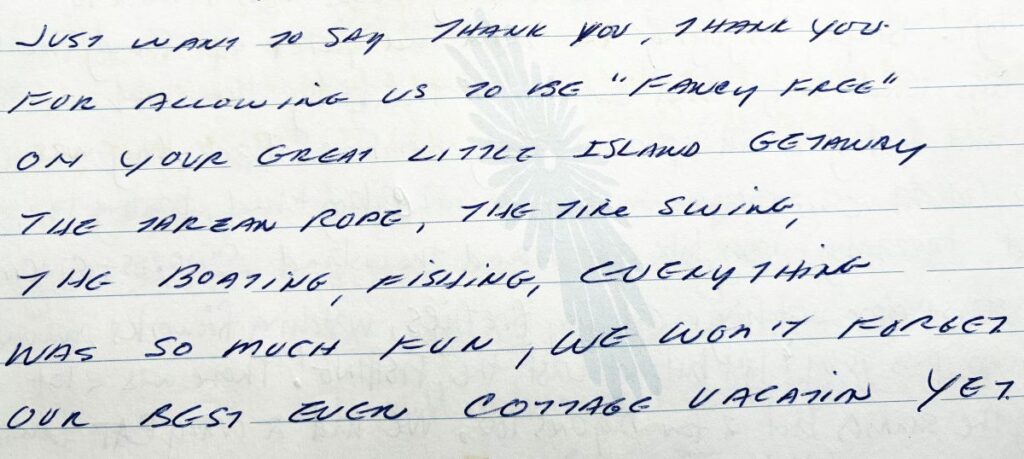 JUST WANT TO SAY THANK YOU, THANK YOU
FOR ALLOWING US TO BE "FANCY FREE"
ON YOUR GREAT LITTLE ISLAND GETAWAY
THE TARZAN ROPE, THE TIRE SWING,
THE BOATING, FISHING, EVERYTHING
WAS SO MUCH FUN, WE WON'T FORGET
OUR BEST EVER COTTAGE VACATIN YET.